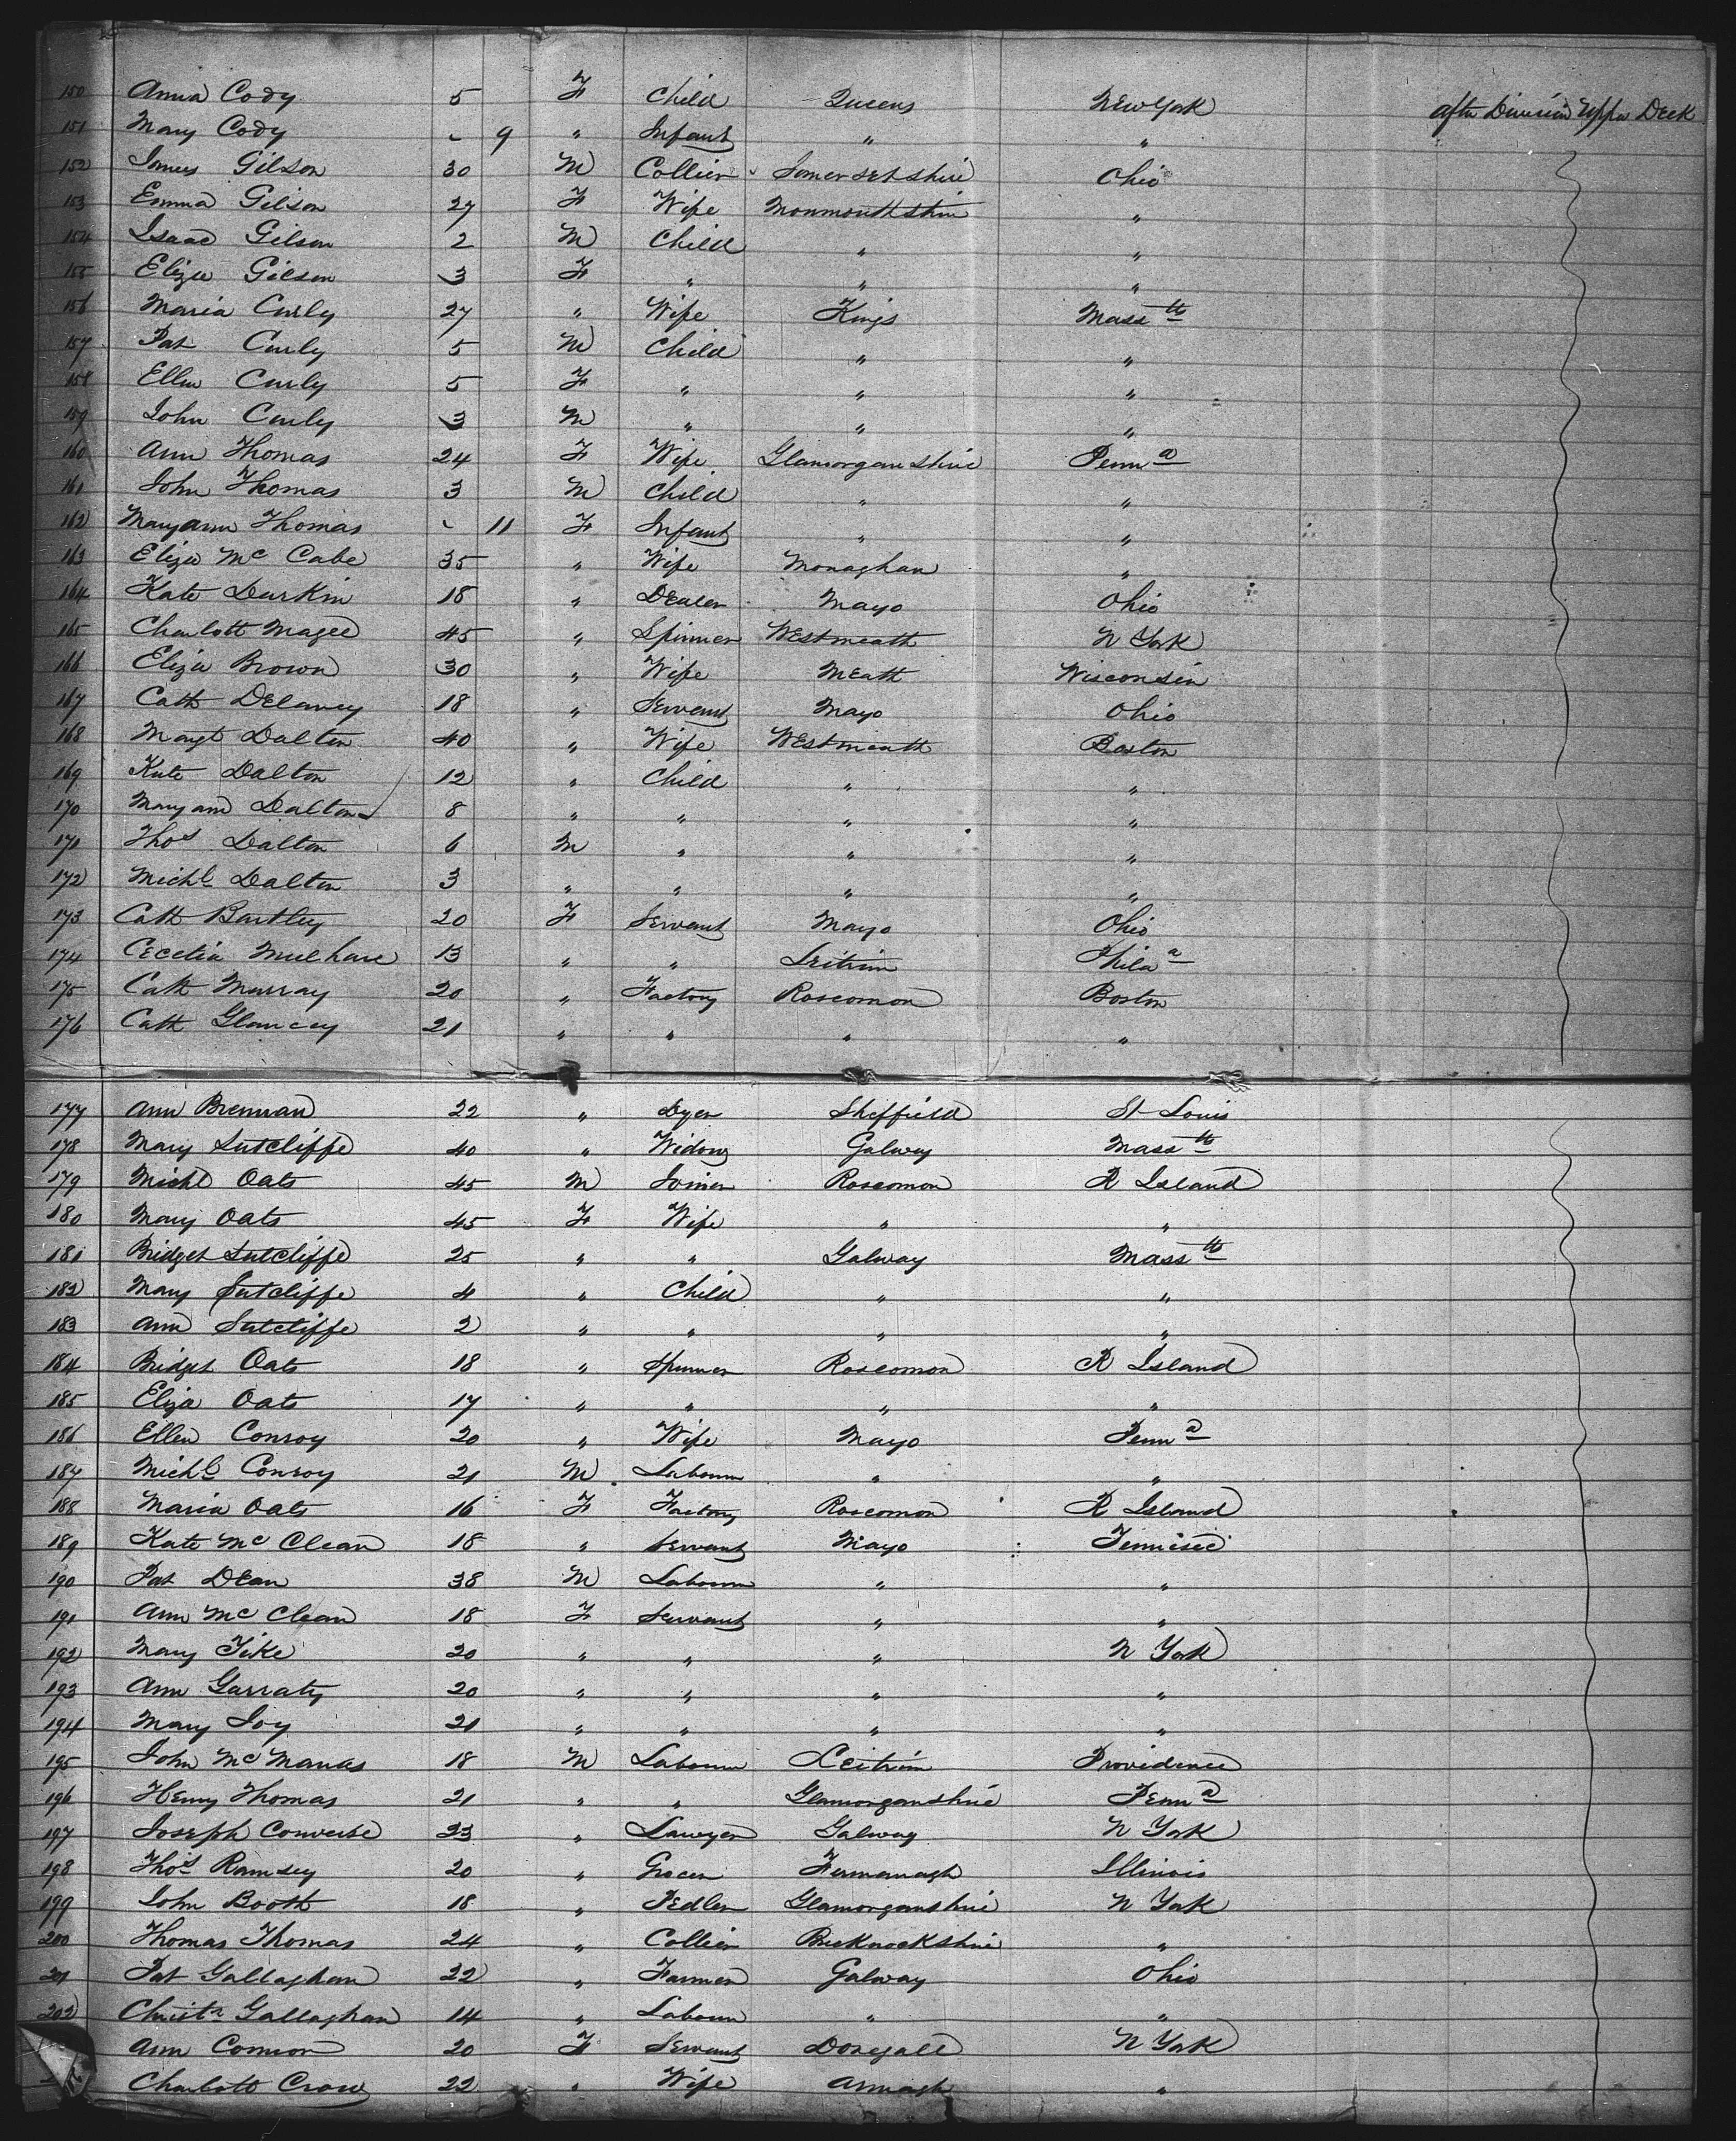 150 Anna Cody 5 F Child Queens New York After Division Upper Deck
151 Mary Cody - 9 " Infant " "
152 James Gilson 30 M Collier Somersetshire Ohio
153 Emma Gilson 27 F Wife Monmouthshire "
154 Isaac Gilson 2 M Child " "
155 Eliza Gilson 3 F " " "
156 Maria Curly 27 " Wife Kings Mass ts
157 Pat Curly 5 M Child " "
158 Ellen Curly 5 F " " "
159 John Curly 3 M " " "
160 Ann Thomas 24 F Wife Glamorganshire Penn a
161 John Thomas 3 M Child " "
162 Maryann Thomas - 11 F Infant " "
163 Eliza Mc Cabe 35 " Wife Monaghan "
164 Kate Durkin 18 " Dealer Mayo Ohio
165 Charlott Magee 45 " Spinner Westmeath N York
166 Eliza Brown 30 " Wife Meath Wisconsin
167 Cath Delaney 18 " Servant Mayo Ohio
168 Margt Dalton 40 " Wife Westmeath Boston
169 Kate Dalton 12 " Child " "
170 Maryann Dalton 8 " " " "
171 Thos Dalton 6 M " " "
172 Michl Dalton 3 " " " "
173 Cath Bartley 20 F Servant Mayo Ohio
174 Cecelia Mulhare 13 " " Leitrim Phila a
175 Cath Murray 20 " Factory Roscomon Boston
176 Cath Glancey 21 " " " "
177 Ann Brennan 22 " Dyer Sheffield St Louis
178 Mary Sutcliffe 40 " Widow Galway Mass ts
179 Michl Oats 45 M Joiner Roscomon R Island
180 Mary Oats 45 F Wife " "
181 Bridget Sutcliffe 25 " " Galway Mass ts
182 Mary Sutcliffe 4 " Child " "
183 Ann Sutcliffe 2 " " " "
184 Bridget Oats 18 " Spinner Roscomon R Island
185 Eliza Oats 17 " " " "
186 Ellen Conroy 20 " Wife Mayo Penn a
187 Michl Conroy 21 M Labourer " "
188 Maria Oats 16 F Factory Roscomon R Island
189 Kate Mc Clean 18 " Servant Mayo Tennisee
190 Pat Dean 38 M Labourer " "
191 Ann Mc Clean 18 F Servant " "
192 Mary Fike 20 " " " N York
193 Ann Garraty 20 " " " "
194 Mary Joy 21 " " " "
195 John Mc Manus 18 M Labourer Leitrim Providence
196 Henry Thomas 21 " " Glamorganshire Penn a
197 Joseph Converse 23 " Lawyer Galway N York
198 Thos Ramsey 20 " Grocer Fermanagh Illinois
199 John Booth 18 " Pedler Glamorganshire N York
200 Thomas Thomas 24 " Collier Brecknockshire "
201 Pat Gallaghan 22 " Farmer Galway Ohio
202 Christr Gallaghan 14 " Labourer " "
Ann Connor 20 F Servant Donegall N York
Charlott Crow 22 " Wife Armagh "